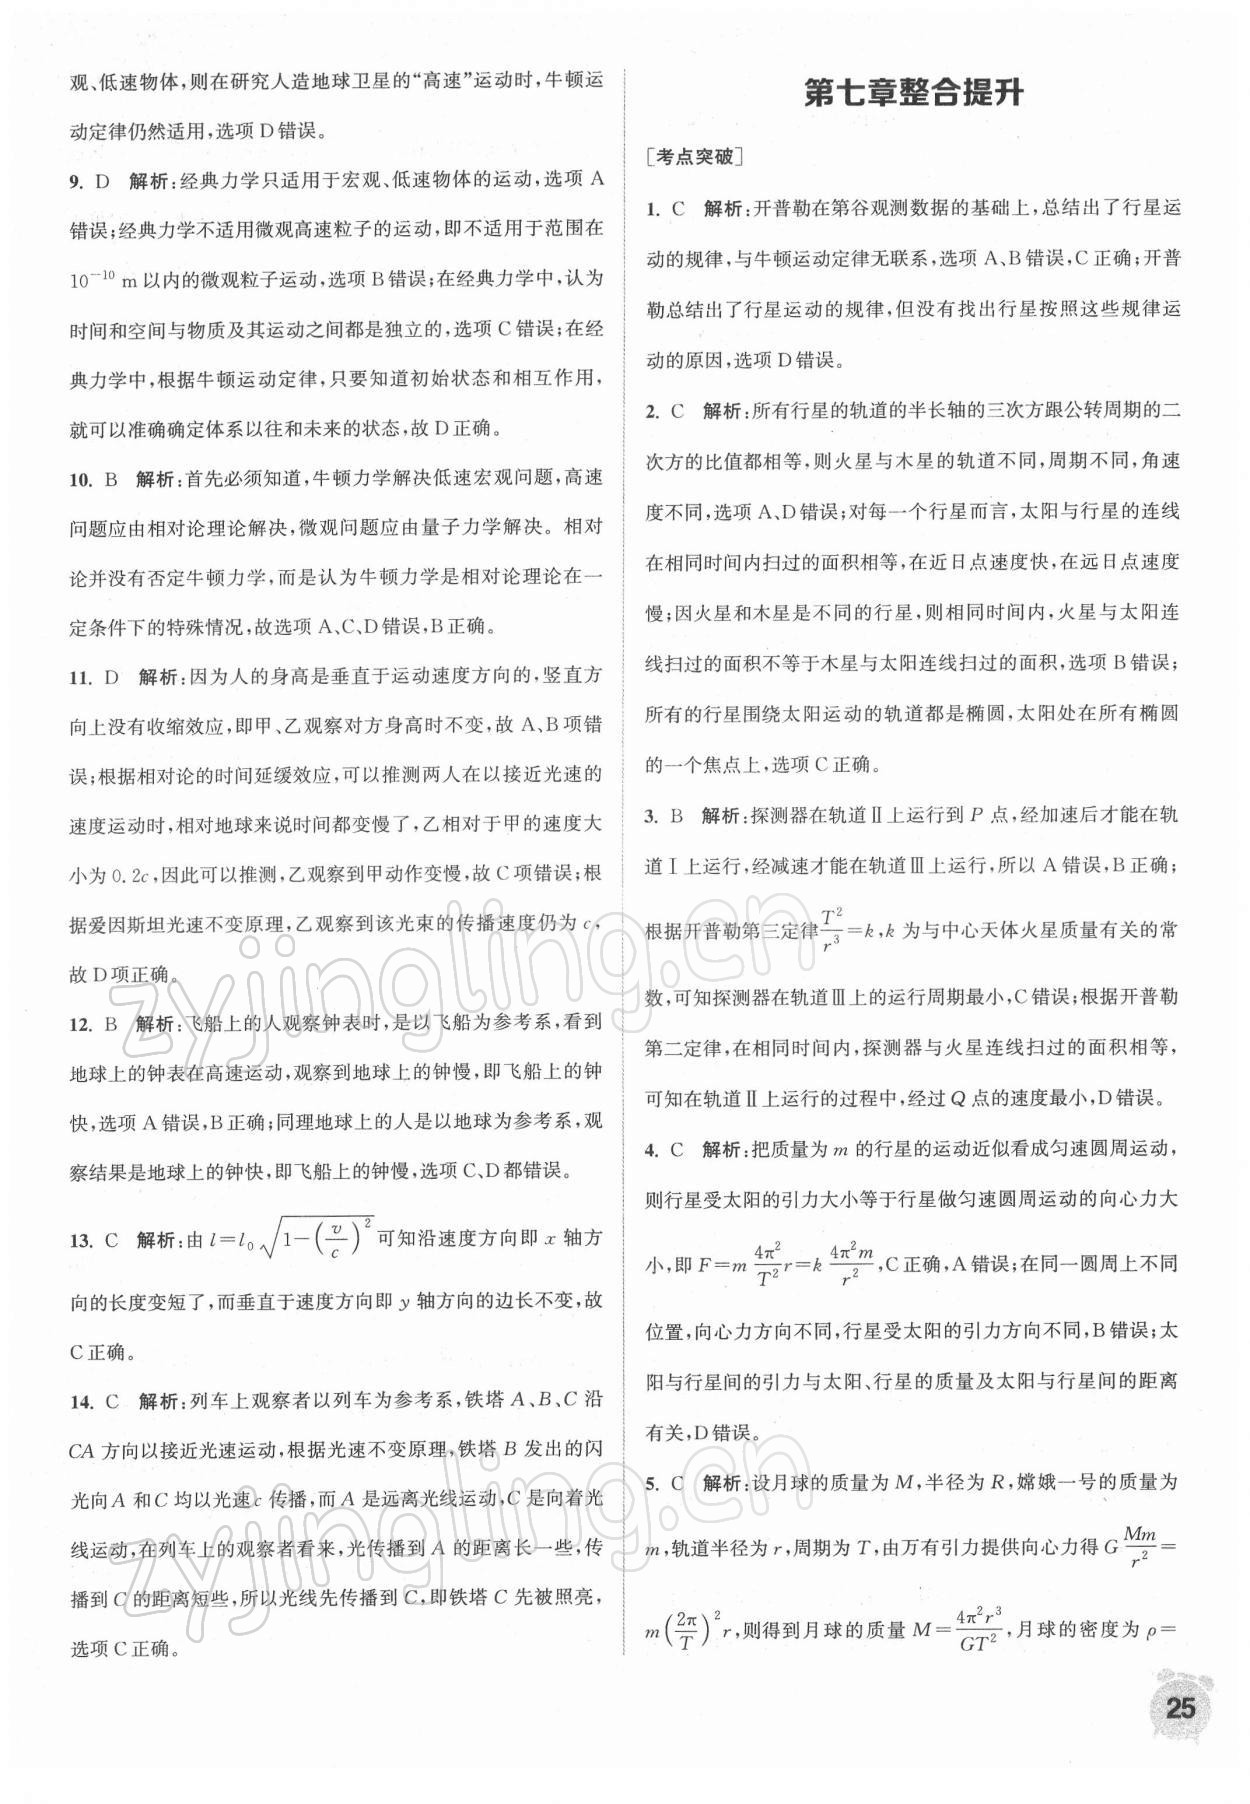 观、低速物体，则在研究人造地球卫星的“高速”运动时，牛顿运
动定律仍然适用，选项 D 错误。
9. D 解析：经典力学只适用于宏观、低速物体的运动，选项 A
错误；经典力学不适用微观高速粒子的运动，即不适用于范围在
10⁻¹⁰ m 以内的微观粒子运动，选项 B 错误；在经典力学中，认为
时间和空间与物质及其运动之间都是独立的，选项 C 错误；在经
典力学中，根据牛顿运动定律，只要知道初始状态和相互作用，
就可以准确确定体系以往和未来的状态，故 D 正确。
10. B 解析：首先必须知道，牛顿力学解决低速宏观问题，高速
问题应由相对论理论解决，微观问题应由量子力学解决。相对
论并没有否定牛顿力学，而是认为牛顿力学是相对论理论在一
定条件下的特殊情况，故选项 A、C、D 错误，B 正确。
11. D 解析：因为人的身高是垂直于运动速度方向的，竖直方
向上没有收缩效应，即甲、乙观察对方身高时不变，故 A、B 项错
误；根据相对论的时间延缓效应，可以推测两人在以接近光速的
速度运动时，相对地球来说时间都变慢了，乙相对于甲的速度大
小为 0.2c，因此可以推测，乙观察到甲动作变慢，故 C 项错误；根
据爱因斯坦光速不变原理，乙观察到该光束的传播速度仍为 c，
故 D 项正确。
12. B 解析：飞船上的人观察钟表时，是以飞船为参考系，看到
地球上的钟表在高速运动，观察到地球上的钟慢，即飞船上的钟
快，选项 A 错误，B 正确；同理地球上的人是以地球为参考系，观
察结果是地球上的钟快，即飞船上的钟慢，选项 C、D 都错误。
13. C 解析：由 l=l₀√(1-(v/c)²) 可知沿速度方向即 x 轴方
向的长度变短了，而垂直于速度方向即 y 轴方向的边长不变，故
C 正确。
14. C 解析：列车上观察者以列车为参考系，铁塔 A、B、C 沿
CA 方向以接近光速运动，根据光速不变原理，铁塔 B 发出的闪
光向 A 和 C 均以光速 c 传播，而 A 是远离光线运动，C 是向着光
线运动，在列车上的观察者看来，光传播到 A 的距离长一些，传
播到 C 的距离短些，所以光线先传播到 C，即铁塔 C 先被照亮，
选项 C 正确。
第七章整合提升
［考点突破］
1. C 解析：开普勒在第谷观测数据的基础上，总结出了行星运
动的规律，与牛顿运动定律无联系，选项 A、B 错误，C 正确；开普
勒总结出了行星运动的规律，但没有找出行星按照这些规律运
动的原因，选项 D 错误。
2. C 解析：所有行星的轨道的半长轴的三次方跟公转周期的二
次方的比值都相等，则火星与木星的轨道不同，周期不同，角速
度不同，选项 A、D 错误；对每一个行星而言，太阳与行星的连线
在相同时间内扫过的面积相等，在近日点速度快，在远日点速度
慢；因火星和木星是不同的行星，则相同时间内，火星与太阳连
线扫过的面积不等于木星与太阳连线扫过的面积，选项 B 错误；
所有的行星围绕太阳运动的轨道都是椭圆，太阳处在所有椭圆
的一个焦点上，选项 C 正确。
3. B 解析：探测器在轨道Ⅱ上运行到 P 点，经加速后才能在轨
道Ⅰ上运行，经减速才能在轨道Ⅲ上运行，所以 A 错误，B 正确；
根据开普勒第三定律 T²/r³=k，k 为与中心天体火星质量有关的常
数，可知探测器在轨道Ⅲ上的运行周期最小，C 错误；根据开普勒
第二定律，在相同时间内，探测器与火星连线扫过的面积相等，
可知在轨道Ⅱ上运行的过程中，经过 Q 点的速度最小，D 错误。
4. C 解析：把质量为 m 的行星的运动近似看成匀速圆周运动，
则行星受太阳的引力大小等于行星做匀速圆周运动的向心力大
小，即 F=m 4π²/T² r=k 4π²m/r²，C 正确，A 错误；在同一圆周上不同
位置，向心力方向不同，行星受太阳的引力方向不同，B 错误；太
阳与行星间的引力与太阳、行星的质量及太阳与行星间的距离
有关，D 错误。
5. C 解析：设月球的质量为 M，半径为 R，嫦娥一号的质量为
m，轨道半径为 r，周期为 T，由万有引力提供向心力得 G Mm/r²=
m(2π/T)²r，则得到月球的质量 M=4π²r³/GT²，月球的密度为 ρ=
25
zyjingling.cn
zyjingling.cn